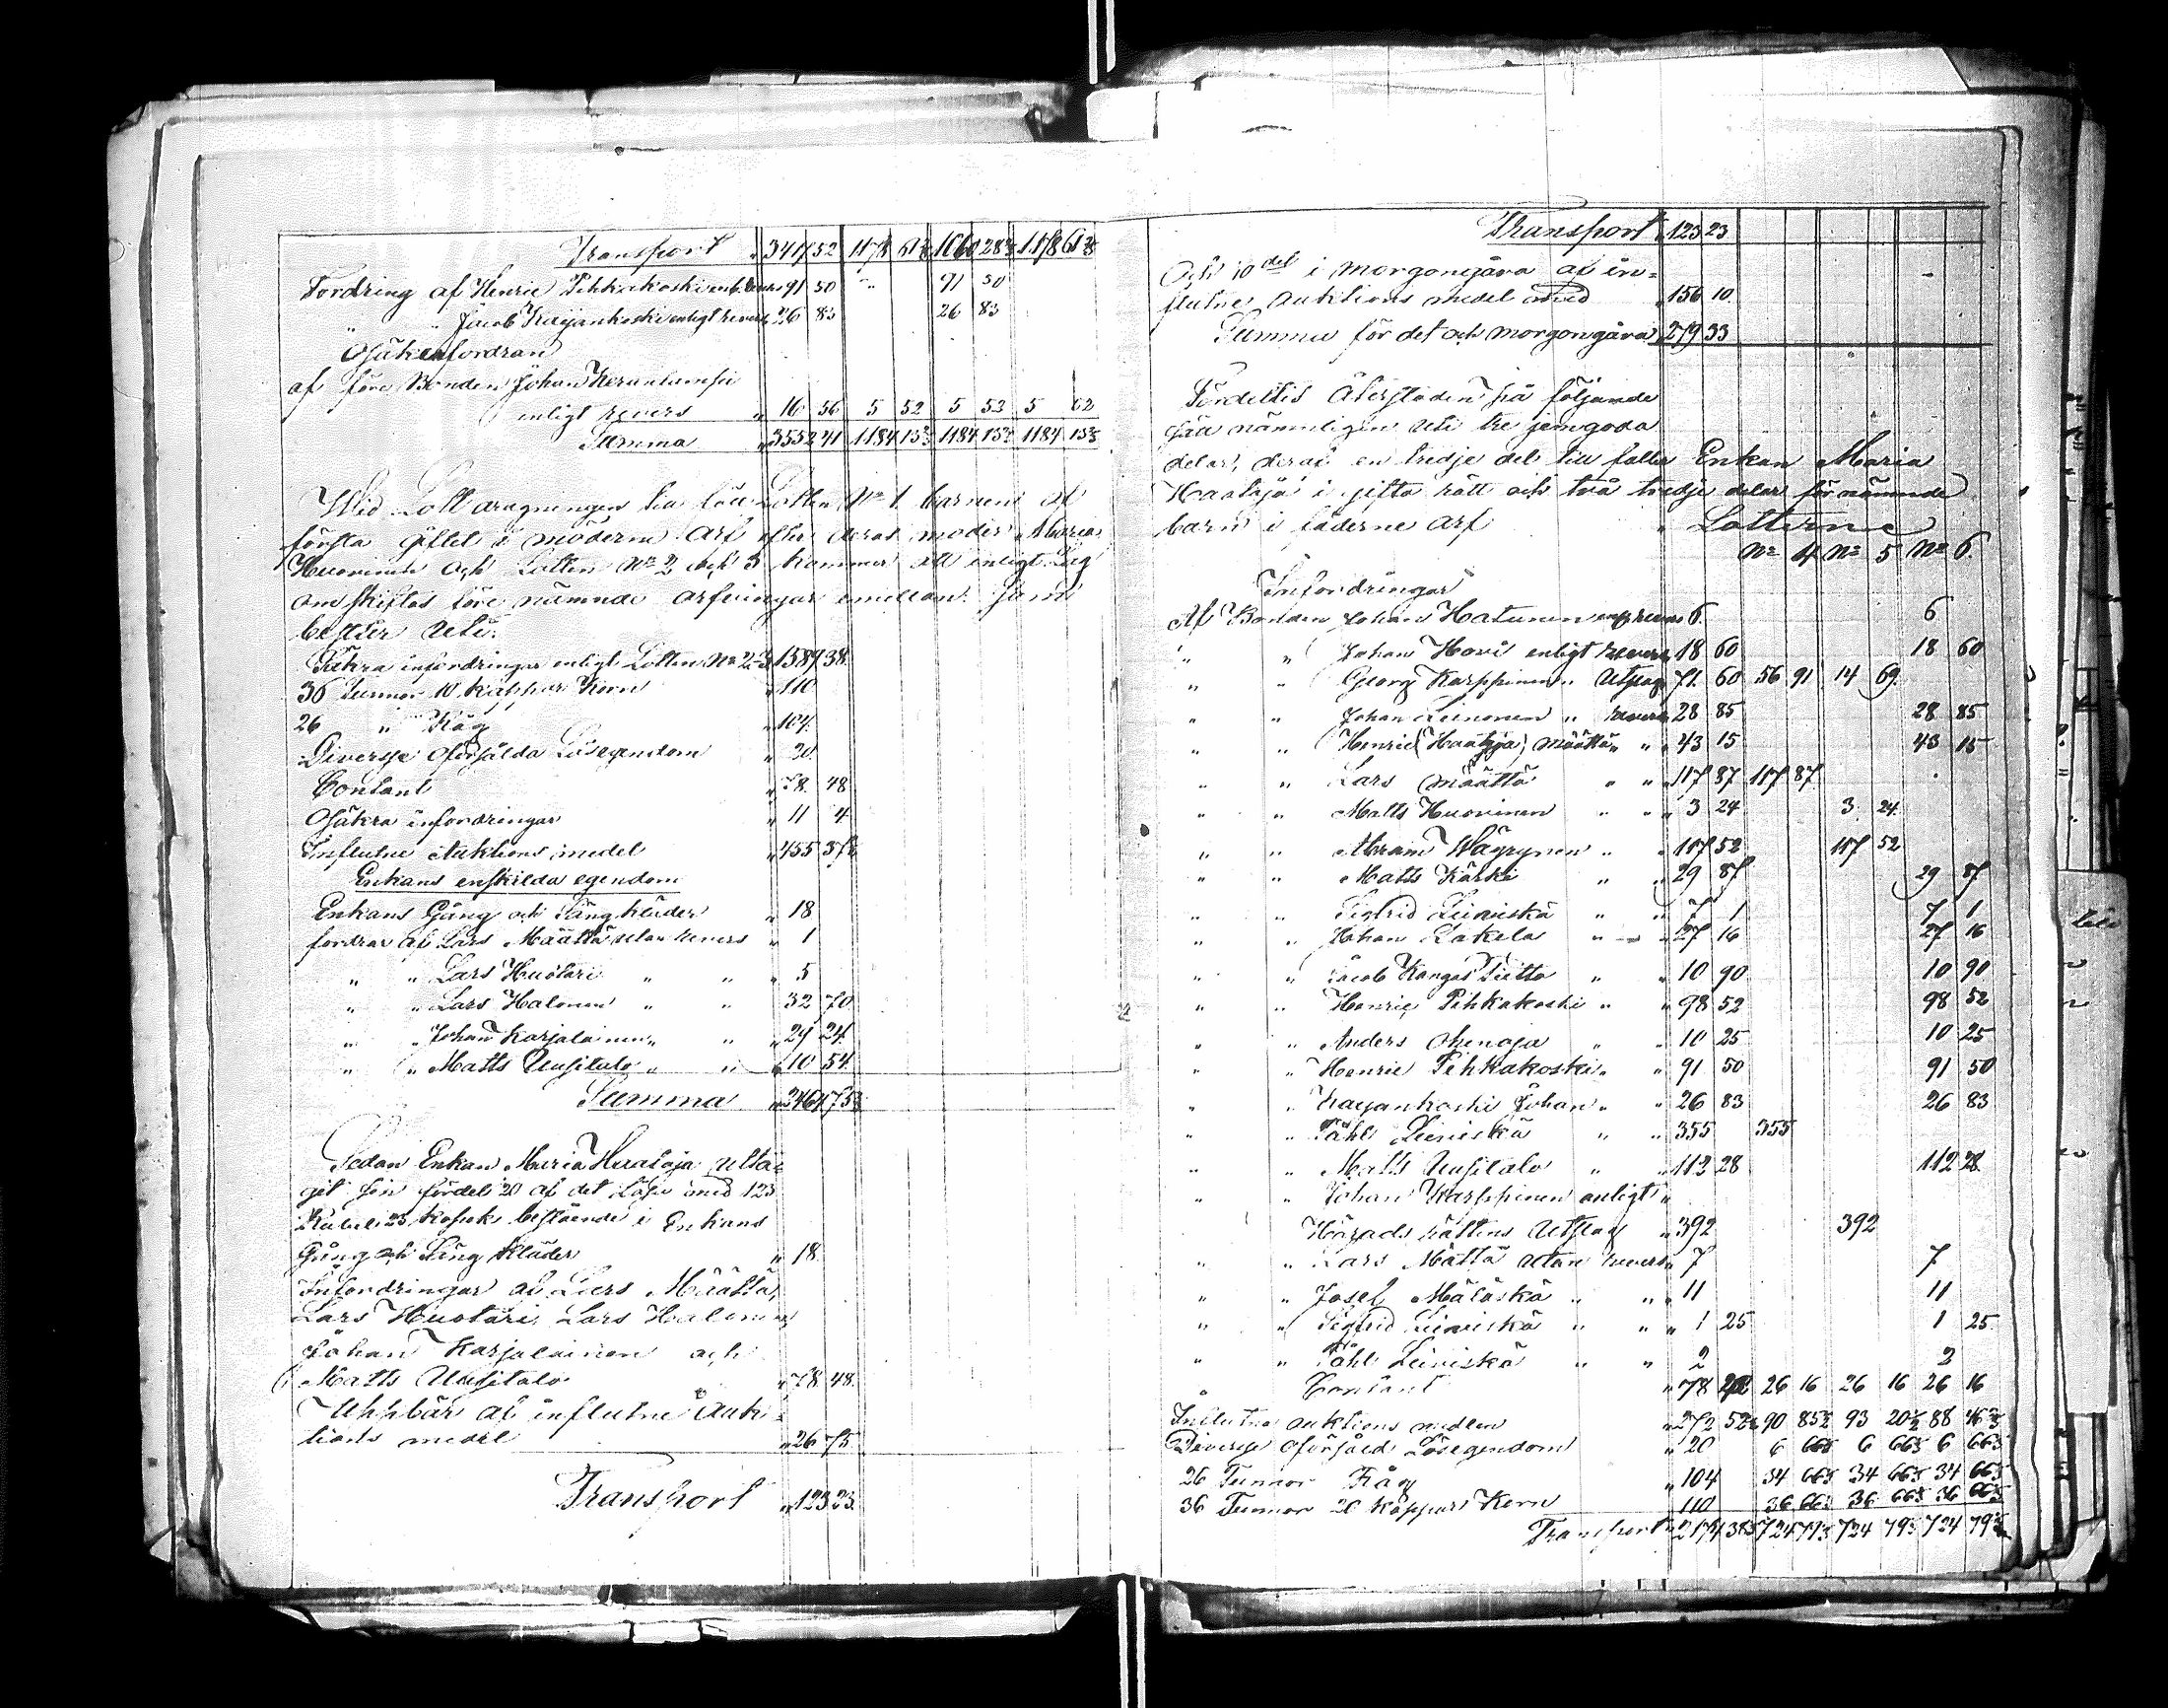 Transport " 3417 52 1178 61⅔ 1060 28⅔ 1178 61⅔
Fordring af Henric Pihkakoski enl. revers 91 50 " " 91 50
" " Jacob Kayankoski enligt revers 26 83 26 83
Osäker fordran
af förre Bonden Johan Keränlambi
enligt revers " 16 56 5 52 5 52 5 52
Summa " 3552 41 1184 13⅔ 1184 13⅔ 1184 13⅔
Wid Lottdragningen tillföll Lotten No 1 barnen af
första giftet i möderne Arf efter deras moder Maria
Huovinen Och Lotten No 2 och 3 kommer att enligt Lag
omskiftas före nämnde arfvingar emellan. samt
består uti:
Säkra infordringar enligt Lotten No 2. 3. 1589 38.
36 Tunnor 10 Kappar Korn " 110
26 " Råg " 104.
Diverse oförsålda Lösegendom " 20.
Contant " 78. 48
Osäkra infordringar " 11 4.
Influtne Auktions medel " 455 37½
Enkans enskilda egendom
Enkans Gång och Säng kläder " 18
fordrar af Lars Määttä utan revers " 1
" " Lars Huotari " " " 5
" " Lars Halonen " " 32 70
" " Johan Karjalainen " " " 29 24.
" " Matts Uusitalo " " " 10 54.
Summa " 2464 75½
Sedan Enkan Maria Haataja utta-
git sin fördel 20 af det Lösa med 123
Rubel 23 Kopek bestående i Enkans
Gång och Säng kläder " 18.
Infordringar af Lars Määttä,
Lars Huotari, Lars Halonen,
Johan Karjalainen och
Matts Uusitalo " 78 48.
Uppbär af influtne Auk-
tions medel " 26 75.
Transport " 123 23.
Transport " 123 23
Och 10del i morgongåva af in-
flutne auktions medel med " 156 10
Summa för det och morgongåva 279 33
Fördeltes Återstoden på följande
sätt nämnligen uti tre jemgoda
delar, deraf en tredje del till faller Enkan Maria
Haataja i gifto rätt och två tredje delar för nämnde
barn i fäderne arf Lotterne
No 4 No 5 No 6.
Infordringar
Af Bonden Johan Hatunen enl. revers 6. 6
" " Johan Hovi enligt revers 18 60 18 60
" " Georg Karppinen " Utslag 71. 60 56 91 14 69.
" " Johan Leinonen " revers 28 85 28 85
" " Henric (Haataja) Määttä " " 43 15 43 15
" " Lars Määttä " " " 117 87 117 87
" " Matts Huovinen " " " 3 24 3. 24.
" " Abram Wäyrynen " " 107 52 107 52
" " Matts Karki " " 29 87 29 87
" " Sigfrid Leiviskä " " 7 1 7 1
" " Johan Lakela " " 27 16 27 16
" " Jacob Kangas Tietto " " 10 90 10 90
" " Henric Pihkakoski " " 98 52 98 52
" " Anders Ohenoja " " 10 25 10 25
" " Henric Pihkakoski " " 91 50 91 50
" " Kayankoski Johan " " 26 83 26 83
" " Påhl Leiviskä " " 355 355
" " Matts Uusitalo " " 112 28 112 28.
" " Johan Karppinen enligt "
Härads rättens Utslag " 392 392
" " Lars Mättä utan revers " 7 7
" " Josef Mäläskä " " " 11 11
" " Sigfrid Leiviskä " " " 1 25 1 25.
" " Påhl Leiviskä " " 2 2
" Contant " 78 48 26 16 26 16 26 16
Influtna auktions medlen " 272 52½ 90 85½ 93 20½ 88 46½
Diverse oförsåld Lösegendom " 20 6 66⅔ 6 66⅔ 6 66⅔
26 Tunnor Råg " 104 34 66⅔ 34 66⅔ 34 66⅔
36 Tunnor 20 Kappar Korn 110 36 66⅔ 36 66⅔ 36 66⅔
Transport " 2174 724 79⅓ 724 79⅓ 724 79⅓